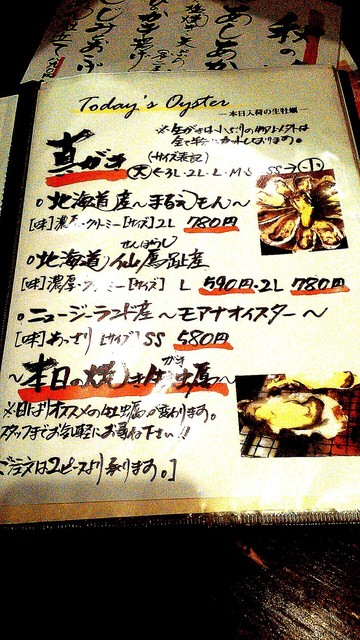 Today's Oyster
―本日入荷の生牡蠣―
真がき
(サイズ表記)
大←3L・2L・L・M・S・SS→小
○北海道産～まるえもん～
[味]濃厚・クリーミー[サイズ]2L 780円
せんぽうし
○北海道 仙鳳趾産
[味]濃厚・クリーミー[サイズ] L 590円・2L 780円
○ニュージーランド産～モアナオイスター～
[味]あっさり[サイズ]SS 580円
がき
～本日の焼き牡蠣～
※日によりオススメの牡蠣が変わります。
スタッフまでお気軽にお尋ね下さい!!
ご注文は2ピースより承ります。]